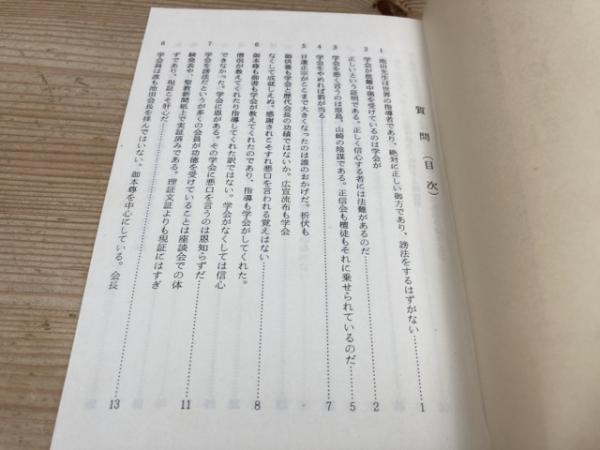 質問（目次）
1 池田先生は世界の指導者であり、絶対に正しい御方であり、謗法をするはずがない……1
2 学会が批難中傷を受けているのは学会が
正しいという証明である。正しく信心する者には法難があるのだ……2
3 学会を悪く言うのは原島、山崎の陰謀である。正信会も檀徒もそれに乗せられているのだ……5
4 学会をやめれば罰が当る……7
5 日蓮正宗がここまで大きくなったのは誰のおかげだ。折伏も
御供養も学会と歴代会長の功績ではないか。広宣流布も学会
なくして成就しえぬ。感謝されこそすれ悪口を言われる覚えはない……8
6 御本尊も御書も学会が教えてくれたのであり、指導も学会がしてくれた。
僧侶が教えてくれたり指導してくれた訳ではない。学会がなくしては信心
できなかった。学会に恩がある。その学会に悪口を言うのは恩知らずだ……11
7 学会を謗法だというが多くの会員が功徳を受けていることは座談会での体
験発表や、聖教新聞紙上で実証済みである。理証文証よりも現証にはすぎ
ずであり、現証こそ肝心だ……13
8 学会員は誰も池田会長を拝んではいない。御本尊を中心にしている。会長